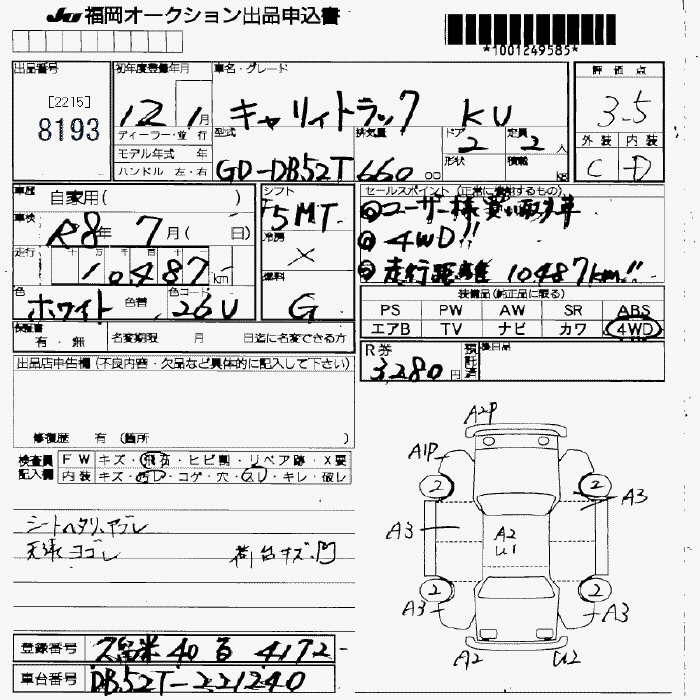 JU 福岡オークション出品申込書
*1001249585*
出品番号
[2215]
8193
初年度登録年月
12 1月
ディーラー・並行
モデル年式 年
ハンドル 左・右
車名・グレード
キャリィトラック KU
型式
GD-DB52T
排気量
660 cc
ドア
2
形状
定員
2人
積載
kg
評価点
3.5
外装 内装
C D
車歴
自家用( )
車検
R8年 7月( 日)
走行
十 万 千 百 十
10487km
色
ホワイト 色替
色コード
26U
シフト
F5MT
冷房
×
燃料
G
セールスポイント(正常に作動するもの)
◎ユーザー様買い取り車
◎4WD!!
◎走行距離 10487km!!
装備品(純正品に限る)
PS PW AW SR ABS
エアB TV ナビ カワ 4WD
保証書
有・無
名変期限 月 日迄に名変できる方
R券
3,280円
預託済
後日品
出品店申告欄(不良内容・欠品など具体的に記入して下さい)
修復歴 有 (箇所 )
検査員
記入欄
FW キズ・飛石・ヒビ割・リペア跡・X要
内装 キズ・汚レ・コゲ・穴・スレ・キレ・破レ
シートヘタリ、ヤブレ
天張ヨゴレ 荷台キズ、凹
A2P
A1P
2 2
A3
A3
A2
U1
2 2
A3 A3
A2 U2
登録番号 久留米 40 る 4172
車台番号 DB52T-221240